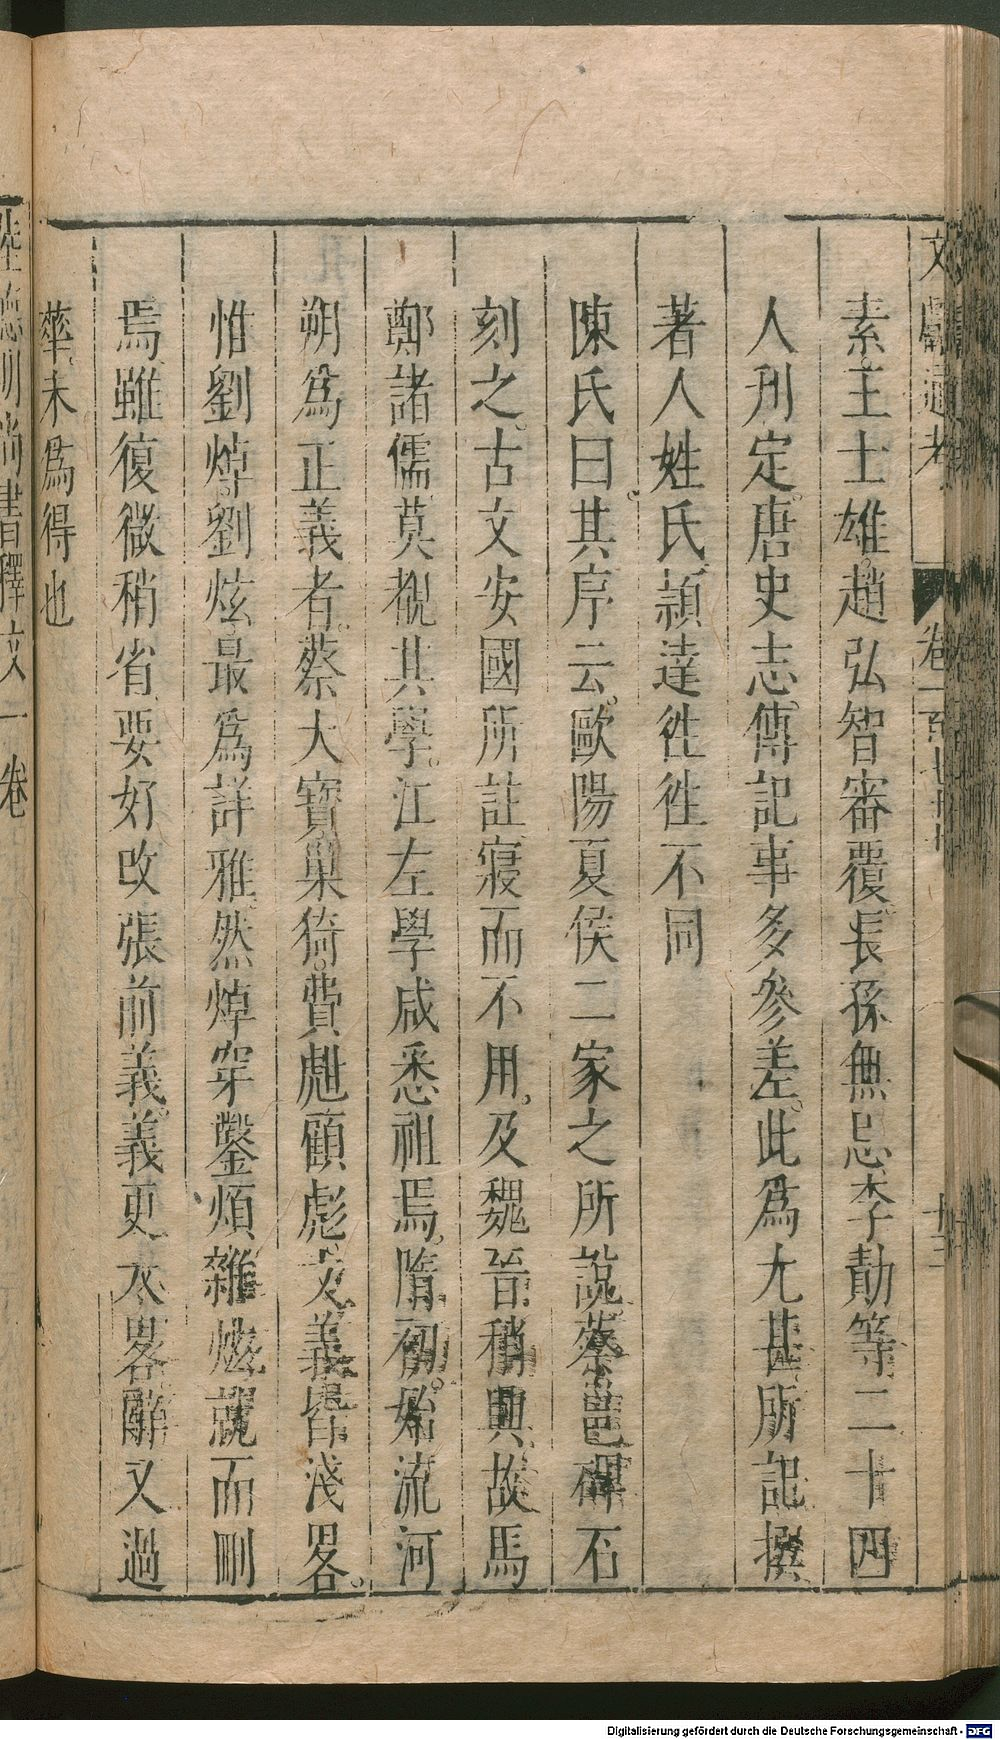 文獻通考 卷一百七十七 十三
素王士雄趙弘智審覆長孫無忌李勣等二十四
人刋定唐史志傳記事多參差此爲尤甚所記撰
著人姓氏頴達徃徃不同
陳氏曰其序云歐陽夏侯二家之所說蔡邕碑石
刻之古文安國所註寢而不用及魏晉稍興故馬
鄭諸儒莫覩其學江左學咸悉祖焉隋初始流河
朔爲正義者蔡大寶巢猗費甝顧彪文義皆淺畧
惟劉焯劉炫最爲詳雅然焯穿鑿煩雜炫就而刪
焉雖復微稍省要好改張前義義更太畧辭又過
華未爲得也
陸德明尚書釋文一卷
Digitalisierung gefördert durch die Deutsche Forschungsgemeinschaft - DFG